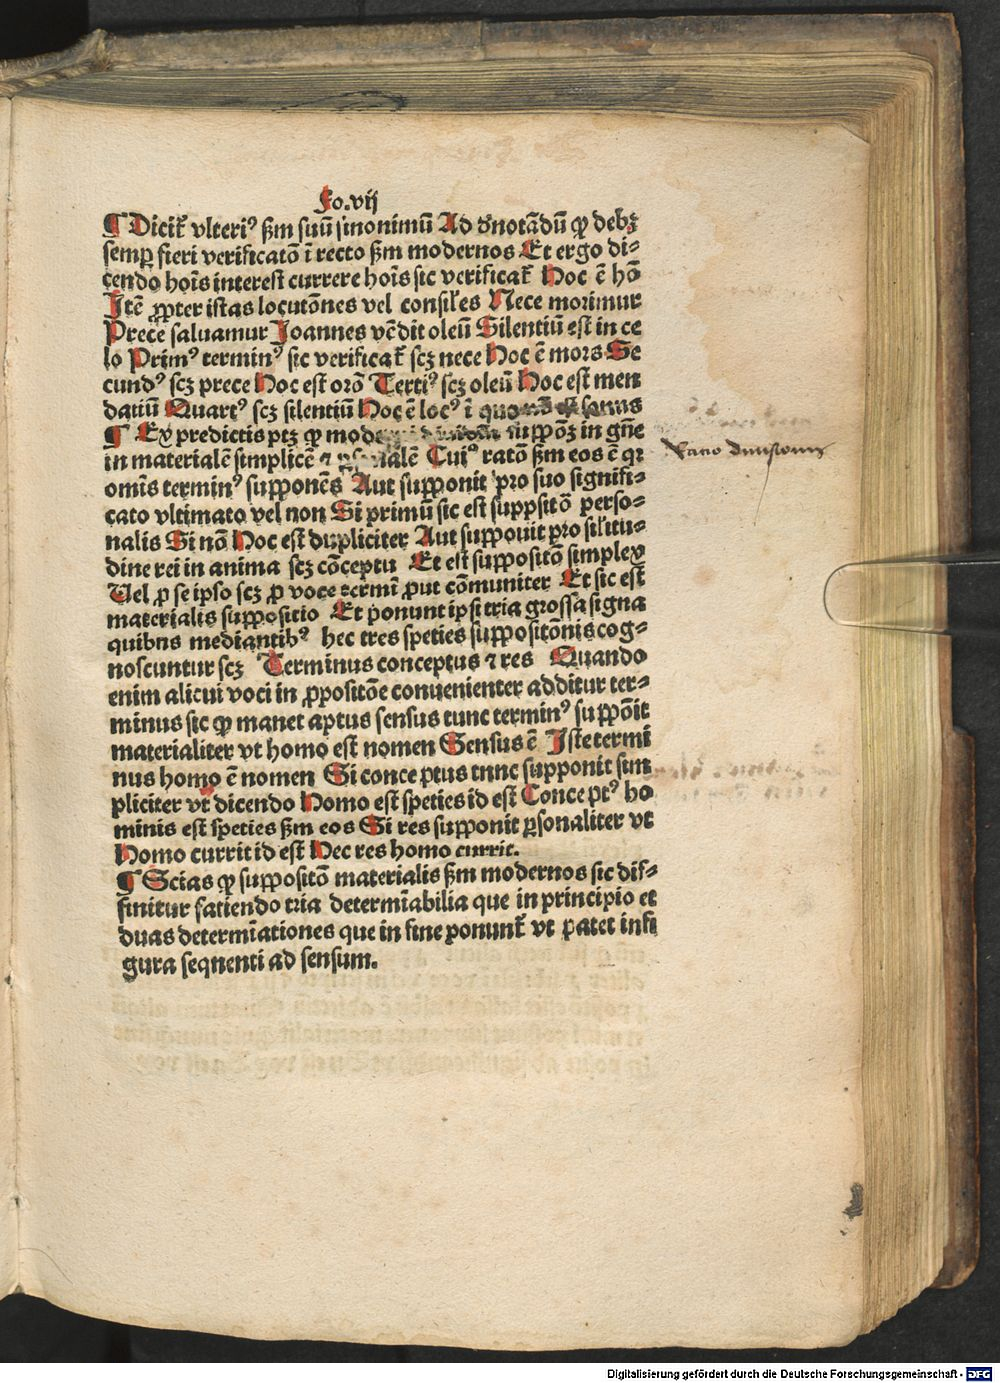 Fo.vij
¶ Dicit᷑ vlteriꝰ ẜm suū sinonimū Ad ꝺnotādū ꝙ debꝫ
semꝑ fieri verificatō ī recto ẜm modernos Et ergo di⸗
cendo hoīs interest currere hoīs sic verificat᷑ Hoc ē hō
Itē ꝓpter istas locutōnes vel consiles Nece morimur
Prece saluamur Joannes vēdit oleū Silentiū est in ce
lo Primꝰ terminꝰ sic verificat᷑ scꝫ nece Hoc ē mors Se
cundꝰ scꝫ prece Hoc est orō Tertiꝰ scꝫ oleū Hoc est men
datiū Quartꝰ scꝫ silentiū Hoc ē locꝰ ī quo
¶ Ex predictis ptꝫ ꝙ in gn̄e
in materialē simplicē ⁊ ꝑsonalē Cuiꝰ ratō ẜm eos ē qꝛ
omīs terminꝰ supponēs Aut supponit pro suo signifi⸗
cato vltimato vel non Si primū sic est suppsitō perso⸗
nalis Si nō Hoc est dupliciter Aut suppouit pro silitu⸗
dine rei in anima scꝫ cōceptu Et est suppositō simplex
Uel ꝓ se ipso scꝫ ꝓ voce termī put cōmuniter Et sic est
materialis suppositio Et ponunt ipsi tria grossa signa
quibns mediantibꝰ hec tres speties suppositōnis cog⸗
noscuntur scꝫ Terminus conceptus ⁊ res Quando
enim alicui voci in ꝓpositōe conuenienter additur ter⸗
minus sic ꝙ manet aptus sensus tunc terminꝰ suppōit
materialiter vt homo est nomen Sensus ē Iste termi
nus homo ē nomen Si conceptus tnnc supponit sim
pliciter vt dicendo Homo est speties id est Conceptꝰ ho
minis est speties ẜm eos Si res supponit ꝑsonaliter vt
Homo currit id est Hec res homo currit.
¶ Scias ꝙ suppositō materialis ẜm modernos sic dif⸗
finitur fatiendo tria determīabilia que in principio et
duas determīationes que in fine ponunt᷑ vt patet in fi
gura seqnenti ad sensum.
Ratio diuisionis